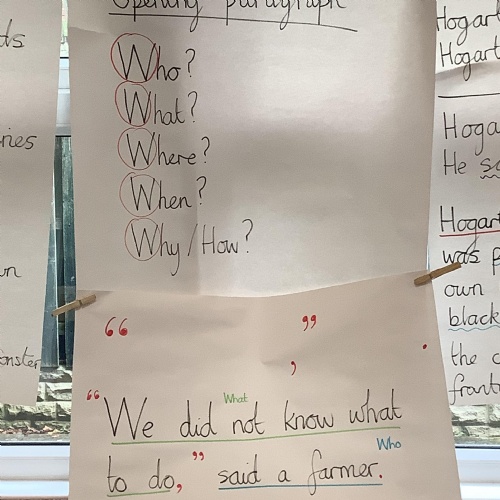 Opening paragraph
Who?
What?
Where?
When?
Why/How?
“ ”
, .
What
“We did not know what
Who
to do,” said a farmer.
ds
ries
wn
onster
Hogart
Hogart
Hoga
He so
Hogart
was p
own
black
the c
frant